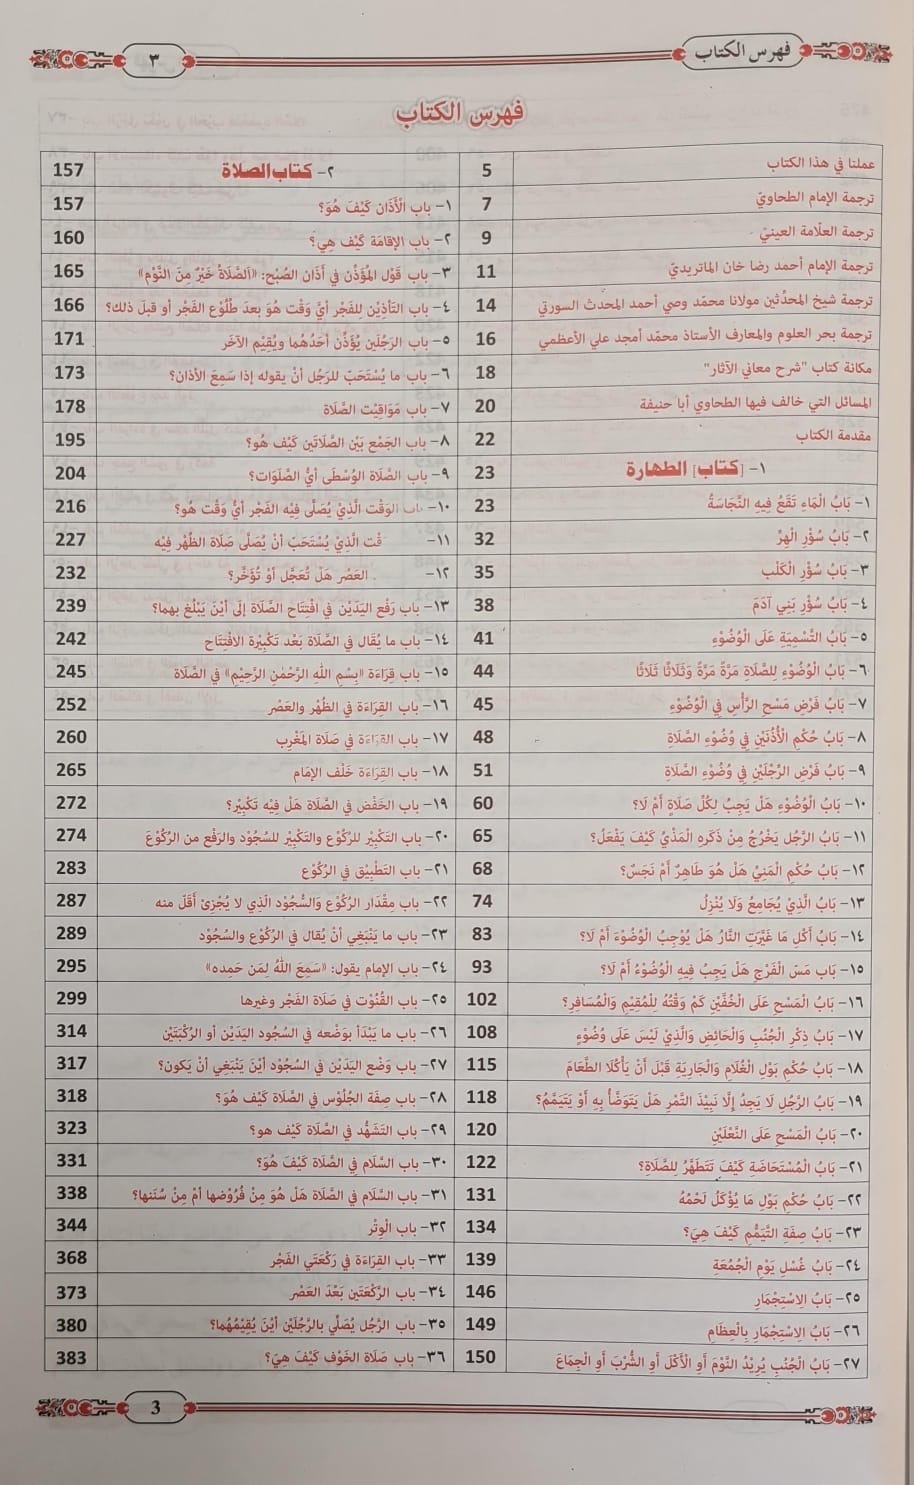 فهرس الكتاب
٣
فهرس الكتاب
عملنا في هذا الكتاب 5
ترجمة الإمام الطحاويّ 7
ترجمة العلّامة العينيّ 9
ترجمة الإمام أحمد رضا خان الماتريديّ 11
ترجمة شيخ المحدِّثين مولانا محمّد وصي أحمد المحدث السورتي 14
ترجمة بحر العلوم والمعارف الأستاذ محمّد أمجد علي الأعظمي 16
مكانة كتاب "شرح معاني الآثار" 18
المسائل التي خالف فيها الطحاوي أبا حنيفة 20
مقدمة الكتاب 22
١- [كتاب] الطهارة 23
١- بَابُ الْمَاءِ تَقَعُ فِيهِ النَّجَاسَةُ 23
٢- بَابُ سُؤْرِ الْهِرِّ 32
٣- بَابُ سُؤْرِ الْكَلْبِ 35
٤- بَابُ سُؤْرِ بَنِي آدَمَ 38
٥- بَابُ التَّسْمِيَةِ عَلَى الْوُضُوْءِ 41
٦- بَابُ الْوُضُوْءِ لِلصَّلَاةِ مَرَّةً مَرَّةً وَثَلَاثًا ثَلَاثًا 44
٧- بَابُ فَرْضِ مَسْحِ الرَّأْسِ فِي الْوُضُوْءِ 45
٨- بَابُ حُكْمِ الْأُذُنَيْنِ فِي وُضُوْءِ الصَّلَاةِ 48
٩- بَابُ فَرْضِ الرِّجْلَيْنِ فِي وُضُوْءِ الصَّلَاةِ 51
١٠- بَابُ الْوُضُوْءِ هَلْ يَجِبُ لِكُلِّ صَلَاةٍ أَمْ لَا؟ 60
١١- بَابُ الرَّجُلِ يَخْرُجُ مِنْ ذَكَرِهِ الْمَذْيُ كَيْفَ يَفْعَلُ؟ 65
١٢- بَابُ حُكْمِ الْمَنِيِّ هَلْ هُوَ طَاهِرٌ أَمْ نَجَسٌ؟ 68
١٣- بَابُ الَّذِيْ يُجَامِعُ وَلَا يُنْزِلُ 74
١٤- بَابُ أَكْلِ مَا غَيَّرَتِ النَّارُ هَلْ يُوْجِبُ الْوُضُوْءَ أَمْ لَا؟ 83
١٥- بَاب مَسِّ الْفَرْجِ هَلْ يَجِبُ فِيهِ الْوُضُوْءُ أَمْ لَا؟ 93
١٦- بَابُ الْمَسْحِ عَلَى الْخُفَّيْنِ كَمْ وَقْتُهُ لِلْمُقِيْمِ وَالْمُسَافِرِ؟ 102
١٧- بَابُ ذِكْرِ الْجُنُبِ وَالْحَائِضِ وَالَّذِيْ لَيْسَ عَلَى وُضُوْءٍ 108
١٨- بَابُ حُكْمِ بَوْلِ الْغُلَامِ وَالْجَارِيَةِ قَبْلَ أَنْ يَأْكُلَا الطَّعَامَ 115
١٩- بَابُ الرَّجُلِ لَا يَجِدُ إِلَّا نَبِيْذَ التَّمْرِ هَلْ يَتَوَضَّأُ بِهِ أَوْ يَتَيَمَّمُ؟ 118
٢٠- بَابُ الْمَسْحِ عَلَى النَّعْلَيْنِ 120
٢١- بَابُ الْمُسْتَحَاضَةِ كَيْفَ تَتَطَهَّرُ لِلصَّلَاةِ؟ 122
٢٢- بَابُ حُكْمِ بَوْلِ مَا يُؤْكَلُ لَحْمُهُ 131
٢٣- بَابُ صِفَةِ التَّيَمُّمِ كَيْفَ هِيَ؟ 134
٢٤- بَابُ غُسْلِ يَوْمِ الْجُمُعَةِ 139
٢٥- بَابُ الِاسْتِجْمَارِ 146
٢٦- بَابُ الِاسْتِجْمَارِ بِالْعِظَامِ 149
٢٧- بَابُ الْجُنُبِ يُرِيْدُ النَّوْمَ أَوِ الْأَكْلَ أَوِ الشُّرْبَ أَوِ الْجِمَاعَ 150
٢- كتاب الصلاة 157
١- باب الْأَذَان كَيْفَ هُوَ؟ 157
٢- باب الإقامَة كَيْف هِيَ؟ 160
٣- باب قَوْل المُؤَذِّن فِي أذَان الصُّبْح: «الصَّلَاةُ خَيْرٌ مِنَ النَّوْم» 165
٤- باب التَأذِيْن لِلفَجْر أيَّ وَقْت هُوَ بعدَ طُلُوْع الفَجْر أو قبلَ ذلك؟ 166
٥- باب الرَجُلَين يُؤَذِّن أحَدُهُما ويُقِيْم الآخَر 171
٦- باب ما يُسْتَحَبّ للرَجُل أنْ يقوله إذا سَمِعَ الأذان؟ 173
٧- باب مَوَاقِيْت الصَّلَاة 178
٨- باب الجَمْع بَيْن الصَّلَاتَين كَيْف هُو؟ 195
٩- باب الصَّلَاة الوُسْطَى أيُّ الصَّلَوات؟ 204
١٠- باب الوَقْت الَّذِيْ يُصَلَّى فِيْه الفَجْر أيُّ وَقْت هُو؟ 216
١١- قْت الَّذِيْ يُسْتَحَبّ أنْ يُصَلَّى صَلَاة الظُهْر فِيْه 227
١٢- العَصْر هَلْ تُعَجَّل أوْ تُؤَخَّر؟ 232
١٣- باب رَفْع اليَدَيْن فِي افْتِتَاح الصَّلَاة إلَى أيْنَ يَبْلُغ بهما؟ 239
١٤- باب ما يُقَال فِي الصَّلَاة بَعْد تَكْبِيْرَة الافْتِتَاح 242
١٥- باب قِرَاءَة «بِسْمِ اللهِ الرَّحْمٰنِ الرَّحِيْمِ» فِي الصَّلَاة 245
١٦- باب القِرَاءَة فِي الظُهْر والعَصْر 252
١٧- باب القِرَاءَة فِي صَلَاة المَغْرِب 260
١٨- باب القِرَاءَة خَلْف الإمَام 265
١٩- باب الخَفْض فِي الصَّلَاة هَلْ فِيْه تَكْبِيْر؟ 272
٢٠- باب التَكْبِيْر للرُكُوْع والتَكْبِيْر للسُجُوْد والرَفْع من الرُكُوْعَ 274
٢١- باب التَطْبِيْق فِي الرُكُوْع 283
٢٢- باب مِقْدَار الرُكُوْع وَالسُّجُوْد الَّذِي لا يُجْزِئ أقَلّ منه 287
٢٣- باب ما يَنْبَغِي أنْ يُقَال فِي الرُكُوْع والسُجُوْد 289
٢٤- باب الإمام يقول: «سَمِعَ اللهُ لِمَن حَمِده» 295
٢٥- باب القُنُوْت فِي صَلَاة الفَجْر وغيرها 299
٢٦- باب ما يَبْدَأ بوَضْعه فِي السُجُود اليَدَيْن أو الرُكْبَتَيْن 314
٢٧- باب وَضْع اليَدَيْن فِي السُجُوْد أيْنَ يَنْبَغِي أنْ يَكون؟ 317
٢٨- باب صِفَة الجُلُوْس فِي الصَّلَاة كَيْف هُوَ؟ 318
٢٩- باب التَشَهُّد فِي الصَّلَاة كَيْف هو؟ 323
٣٠- باب السَّلَام فِي الصَّلَاة كَيْفَ هُوَ؟ 331
٣١- باب السَّلَام فِي الصَّلَاة هَلْ هُوَ مِنْ فُرُوْضها أمْ مِنْ سُنَنها؟ 338
٣٢- باب الوِتْر 344
٣٣- باب القِرَاءَة فِي رَكْعَتَي الفَجْر 368
٣٤- باب الرَّكْعَتَين بَعْدَ العَصْر 373
٣٥- باب الرَّجُل يُصَلِّي بالرَّجُلَيْن أيْنَ يُقِيْمُهُما؟ 380
٣٦- باب صَلَاة الخَوْف كَيْفَ هِيَ؟ 383
3